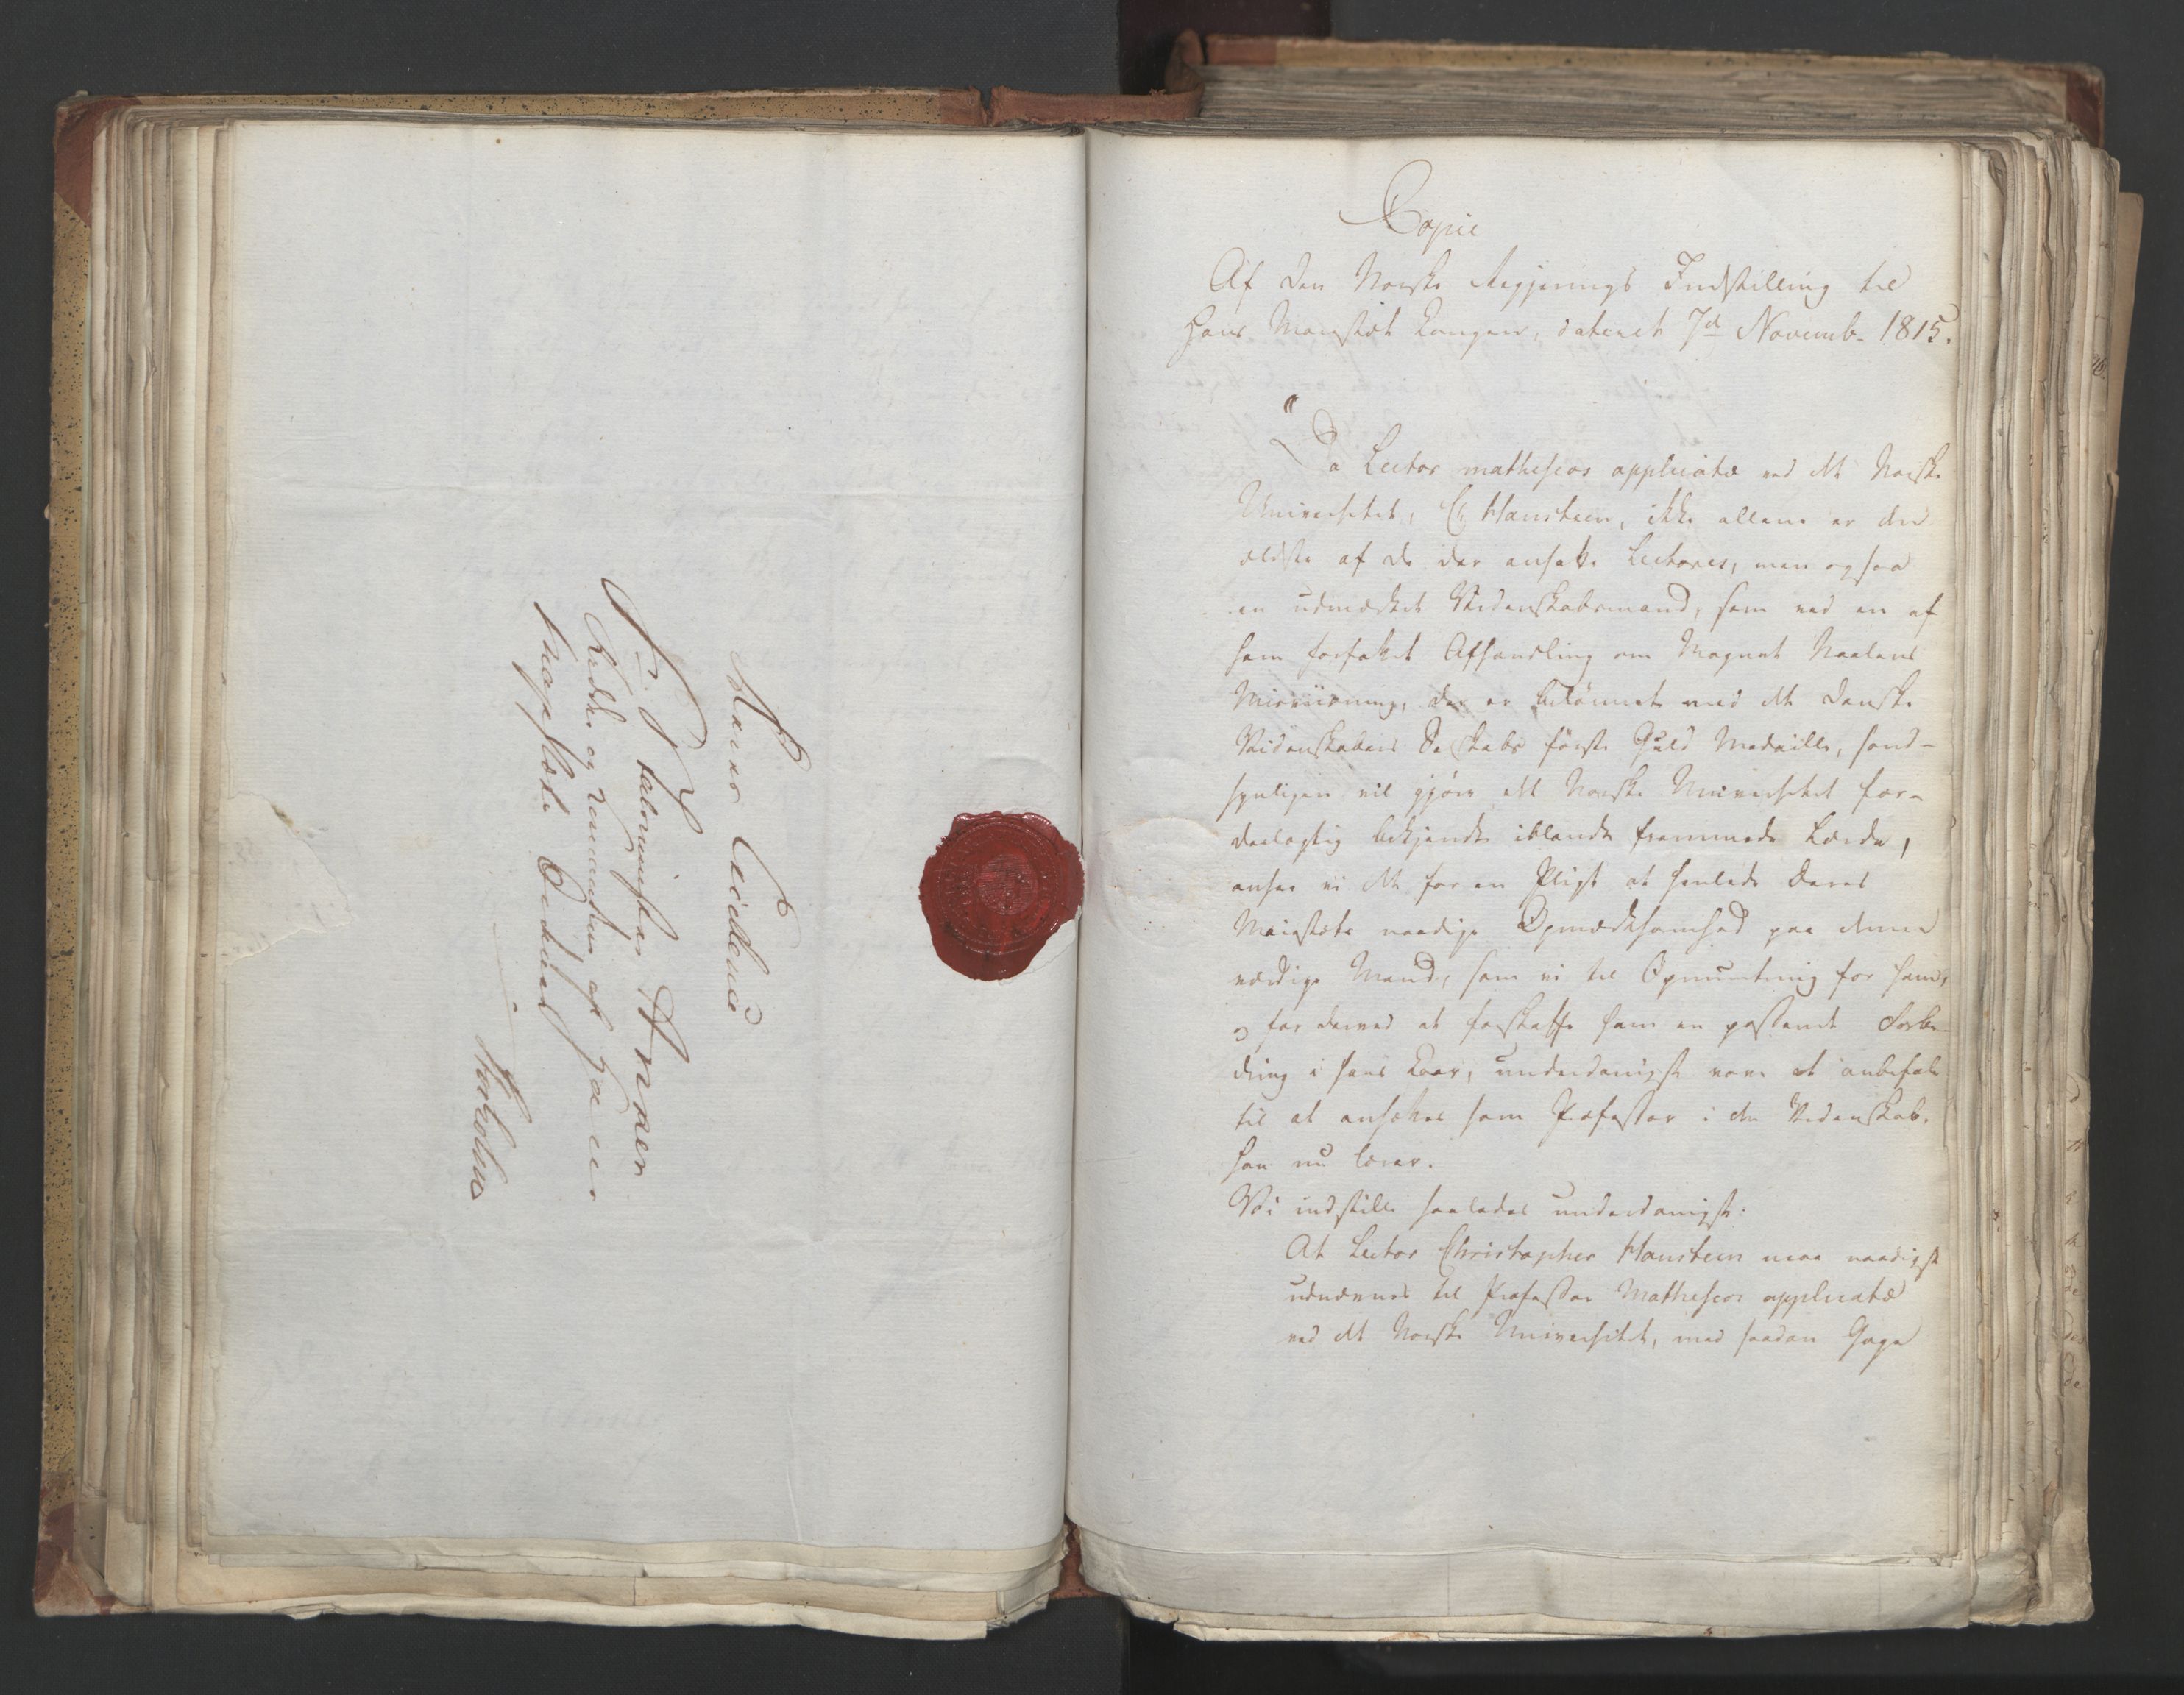 Hans Excellence
Hr Statsminister Anker
Ridder og Commandeur af fleere
høye Ordener
Stockholm
Copie
Af den Norske Regjerings Indstilling til
Hans Majestæt Kongen, dateret 7d Novemb. 1815.
"Da Lector matheseos applicatæ ved det Norske
Universitet, Ch Hansteen, ikke allene er den
ældste af de der ansatte Lectores, men ogsaa
en udmærket Videnskabsmand, som ved en af
ham forfattet Afhandling om Magnet Naalens
Misviisning, der er belønnet med det danske
Videnskabers Selskabs første Guld Medaille, sand-
synligen vil gjøre det Norske Universitet for-
deelagtig bekjendt iblandt fremmede Lærde,
ansee vi det for en Pligt at henlede Deres
Majestæts naadige Opmærksomhed paa denne
værdige Mand, som vi til Opmuntring for ham,
og for derved at forskaffe ham en passende Forbe-
dring i hans Kaar, underdanigst vove at anbefale
til at ansættes som Professor i den Videnskab,
han nu lærer.
Vi indstille saaledes underdanigst:
At Lector Christopher Hansteen maa naadigst
udnævnes til Professor Matheseos applicatæ
ved det Norske Universitet, med saadan Gage